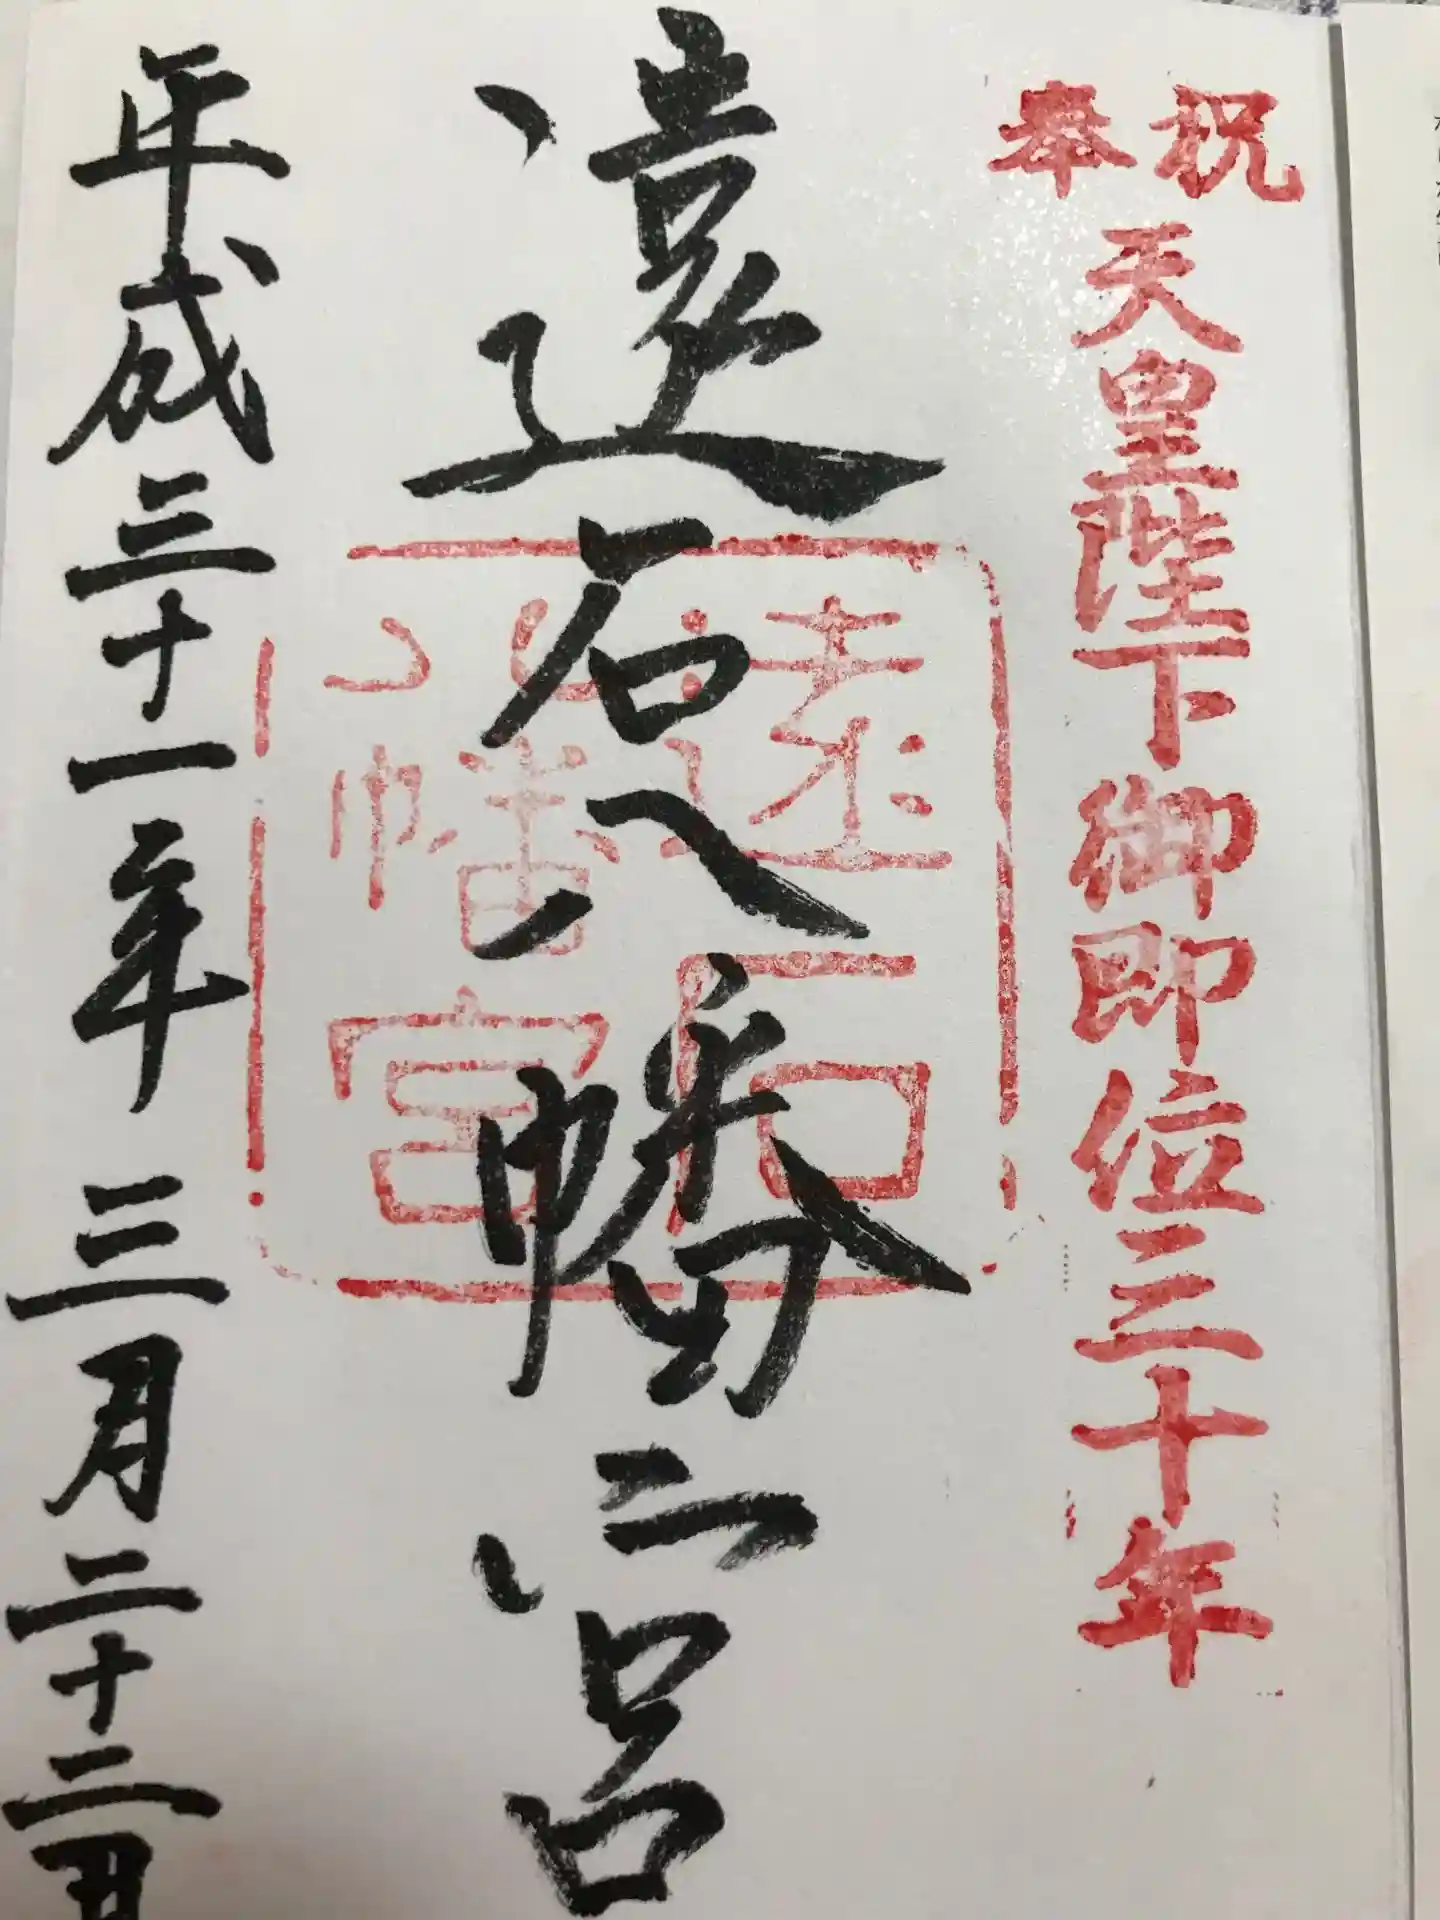 奉祝
天皇陛下御即位三十年
遠石八幡宮
遠石
八幡宮
平成三十一年 三月二十二日